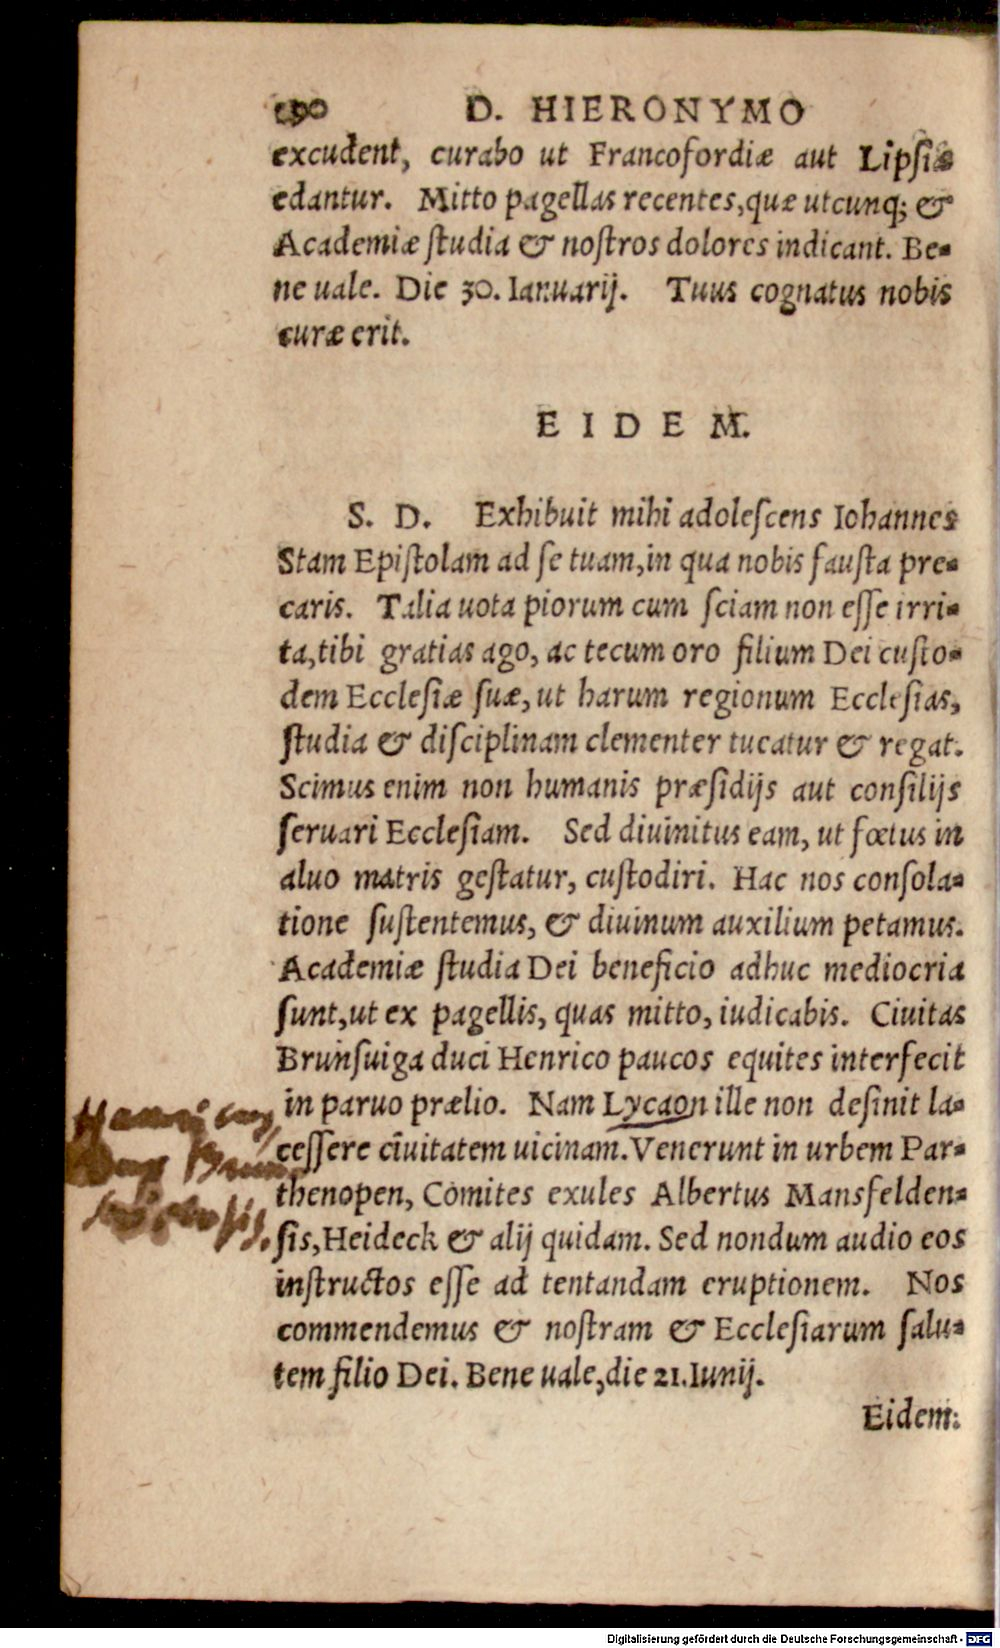 D. HIERONYMO
excudent, curabo ut Francofordiæ aut Lipsiæ
edantur. Mitto pagellas recentes, quæ utcunq; &
Academiæ ſtudia & noſtros dolores indicant. Be-
ne uale. Die 30. Ianuarij. Tuus cognatus nobis
curæ erit.
EIDEM.
S. D. Exhibuit mihi adoleſcens Iohannes
Stam Epiſtolam ad ſe tuam, in qua nobis fauſta pre-
caris. Talia uota piorum cum ſciam non eſſe irri-
ta, tibi gratias ago, ac tecum oro filium Dei cuſto-
dem Eccleſiæ ſuæ, ut harum regionum Eccleſias,
ſtudia & diſciplinam clementer tueatur & regat.
Scimus enim non humanis præſidijs aut conſilijs
ſeruari Eccleſiam. Sed diuinitus eam, ut fœtus in
aluo matris geſtatur, cuſtodiri. Hac nos conſola-
tione ſuſtentemus, & diuinum auxilium petamus.
Academiæ ſtudia Dei beneficio adhuc mediocria
ſunt, ut ex pagellis, quas mitto, iudicabis. Ciuitas
Brunſuiga duci Henrico paucos equites interfecit
in paruo prælio. Nam Lycaon ille non deſinit la-
ceſſere ciuitatem uicinam. Venerunt in urbem Par-
thenopen, Comites exules Albertus Mansfelden-
ſis, Heideck & alij quidam. Sed nondum audio eos
inſtructos eſſe ad tentandam eruptionem. Nos
commendemus & noſtram & Eccleſiarum ſalu-
tem filio Dei. Bene uale, die 21. Iunij.
Eidem.
Digitalisierung gefördert durch die Deutsche Forschungsgemeinschaft - DFG